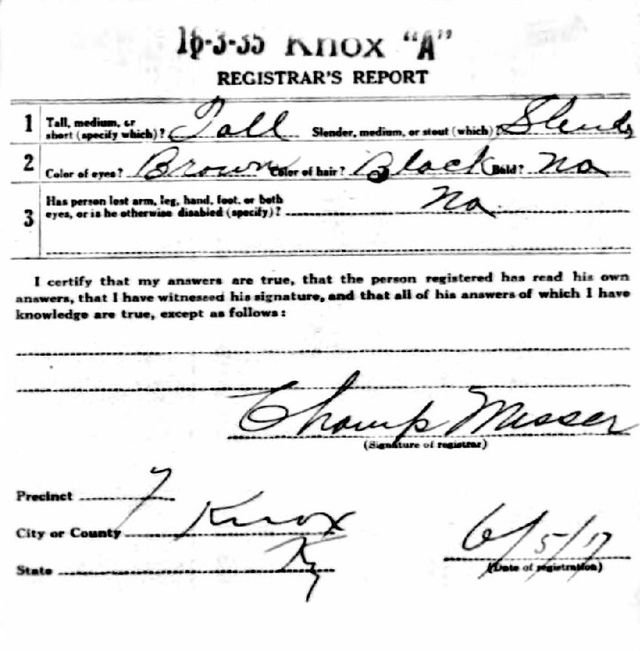 16-3-35 Knox "A"
REGISTRAR'S REPORT
1 Tall, medium, or short (specify which)? Tall Slender, medium, or stout (which)? Slender
2 Color of eyes? Brown Color of hair? Black Bald? No
3 Has person lost arm, leg, hand, foot, or both eyes, or is he otherwise disabled (specify)? No
I certify that my answers are true, that the person registered has read his own
answers, that I have witnessed his signature, and that all of his answers of which I have
knowledge are true, except as follows:
Champ Messer
(Signature of registrar)
Precinct 7
City or County Knox
State Ky
6/5/17
(Date of registration)